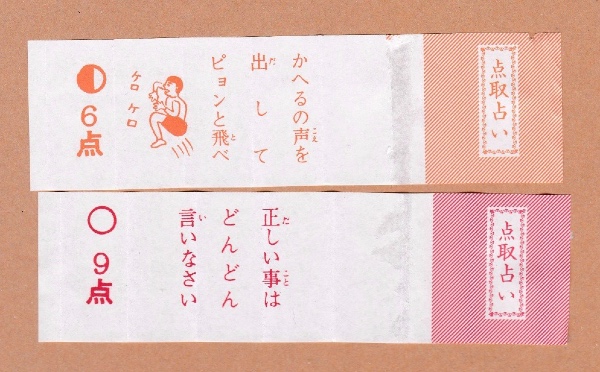 点取占い
かへるの声を
出して
ピョンと飛べ
ケロケロ
6点
点取占い
正しい事は
どんどん
言いなさい
9点